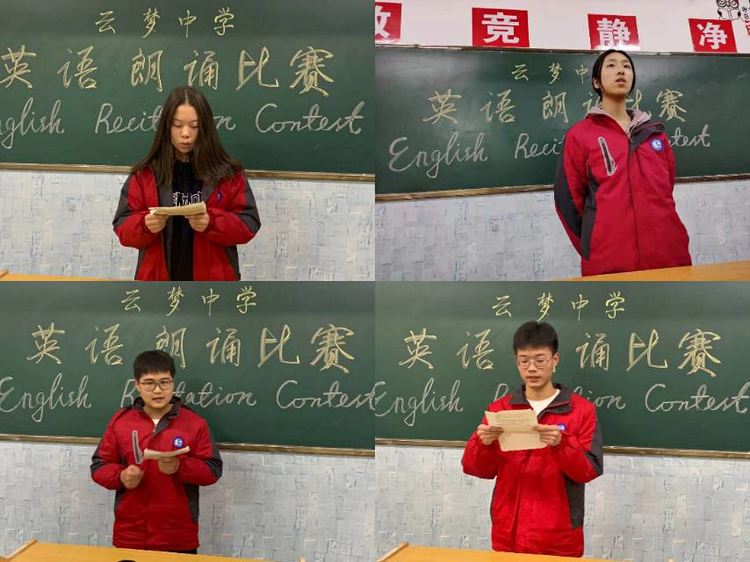 云梦中学
英语朗诵比赛
English Recit on Contest
竞静净
云梦中
英语朗 比赛
English Reci Contest
云梦中学
英语朗诵比赛
English Re tation Contest
云梦中学
英语 诵比赛
English Reci on Contest